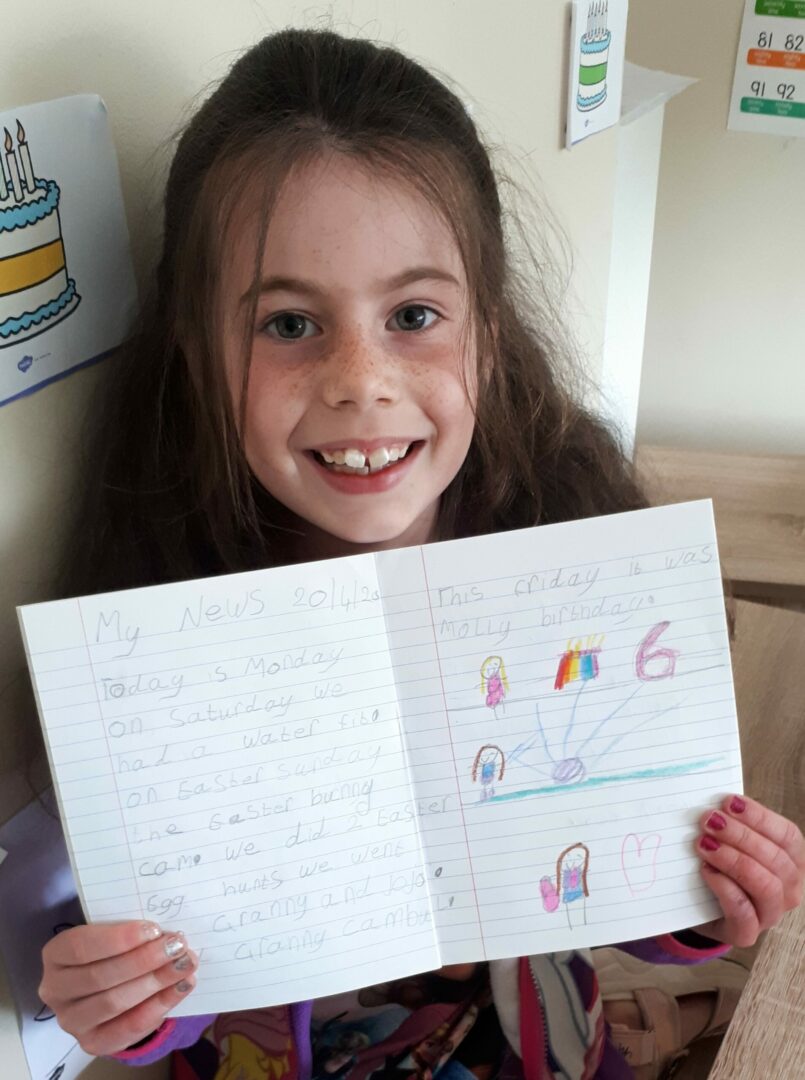 My News 20/4/20
Today is Monday
on Saturday we
had a water fite
on Easter Sunday
the Easter bunny
came we did 2 Easter
Egg hunts we went
Granny and JoJo.
Granny
This friday it was
Molly birthday.
6
81 82
91 92